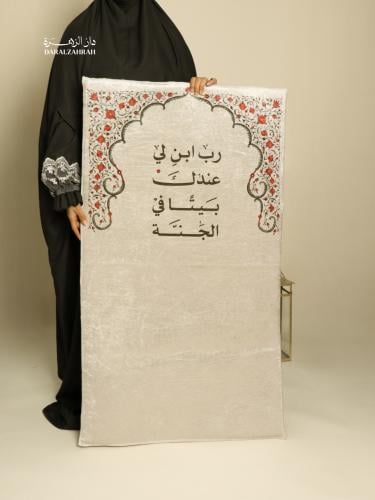 دار الزهرة
DARALZAHRAH
رب ابنِ لي
عندك
بَيتًا في
الجَنّة